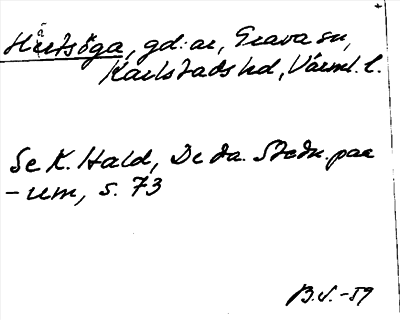 Hårtsöga, gd:ar, Grava sn,
Karlstads hd, Värml. l.
Se K. Hald, De da. Stedn. paa
-um, s. 73
B.S. -59